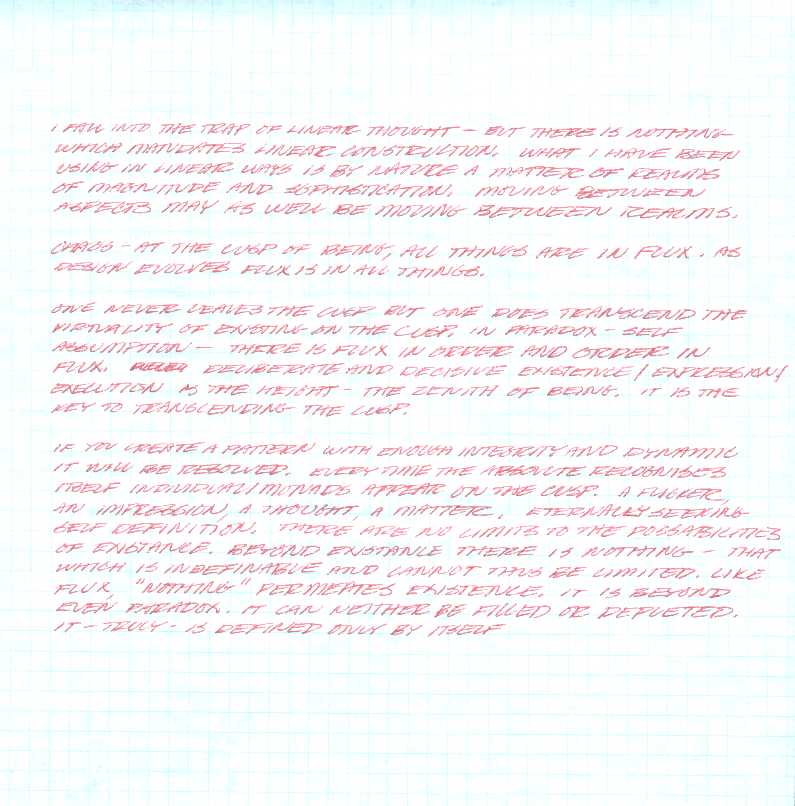 I FALL INTO THE TRAP OF LINEAR THOUGHT - BUT THERE IS NOTHING
WHICH MANDATES LINEAR CONSTRUCTION. WHAT I HAVE BEEN
USING IN LINEAR WAYS IS BY NATURE A MATTER OF REALMS
OF MAGNITUDE AND SOPHISTICATION. MOVING BETWEEN
ASPECTS MAY AS WELL BE MOVING BETWEEN REALMS.
CHAOS - AT THE CUSP OF BEING, ALL THINGS ARE IN FLUX. AS
DESIGN EVOLVES FLUX IS IN ALL THINGS.
ONE NEVER LEAVES THE CUSP BUT ONE DOES TRANSCEND THE
VIRTUALITY OF EXISTING ON THE CUSP. IN PARADOX - SELF
ASSUMPTION - THERE IS FLUX IN ORDER AND ORDER IN
FLUX. DELIBERATE AND DECISIVE EXISTENCE / EXPRESSION /
EXECUTION AS THE HEIGHT - THE ZENITH OF BEING. IT IS THE
KEY TO TRANSCENDING THE CUSP.
IF YOU CREATE A PATTERN WITH ENOUGH INTEGRITY AND DYNAMIC
IT WILL BE RESOLVED. EVERY TIME THE ABSOLUTE RECOGNISES
ITSELF INDIVIDUAL / MONADS APPEAR ON THE CUSP. A FLICKER,
AN IMPRESSION, A THOUGHT, A MATTER. ETERNALLY SEEKING
SELF DEFINITION. THERE ARE NO LIMITS TO THE POSSABILITIES
OF EXISTANCE. BEYOND EXISTANCE THERE IS NOTHING - THAT
WHICH IS INDEFINABLE AND CANNOT THUS BE LIMITED. LIKE
FLUX, "NOTHING" PERMEATES EXISTENCE. IT IS BEYOND
EVEN PARADOX. IT CAN NEITHER BE FILLED OR DEPLETED.
IT - TRULY - IS DEFINED ONLY BY ITSELF